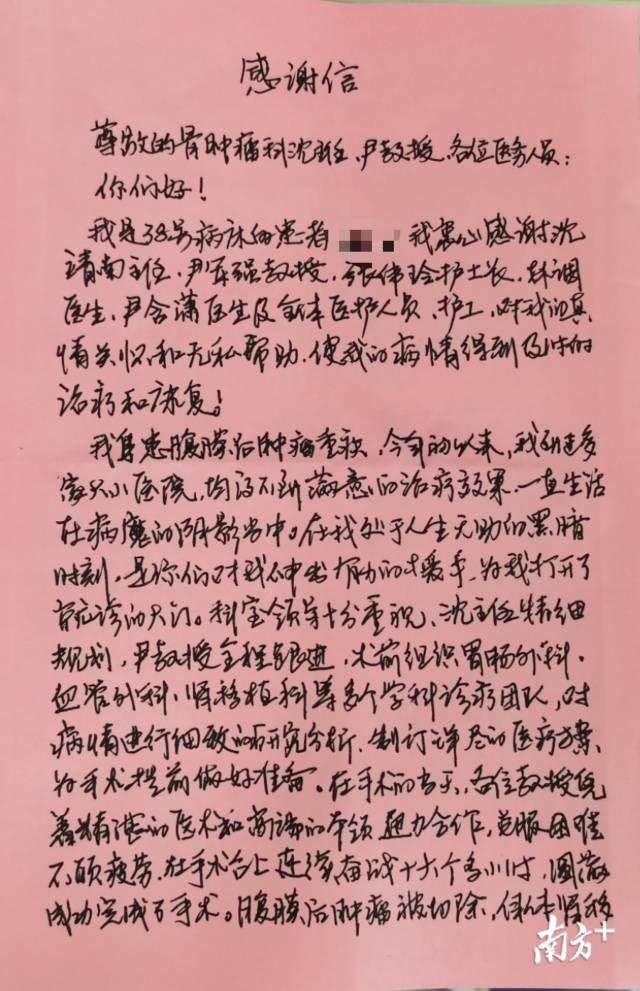 感谢信
尊敬的骨肿瘤科沈主任、尹教授、各位医务人员：
你们好！
我是38号病床的患者 我衷心感谢沈
靖南主任、尹军强教授、张伟玲护士长、林调
医生、尹含潇医生及全体医护人员、护工，对我的真
情关怀和无私帮助，使我的病情得到及时的
治疗和康复！
我身患腹膜后肿瘤重积，今年初以来，我到过多
家大小医院，均得不到满意的治疗效果，一直生活
在病魔的阴影当中。在我处于人生无助的黑暗
时刻，是你们对我伸出有力的援手，为我打开了
就诊的大门。科室领导十分重视，沈主任精细
规划，尹教授全程跟进，术前组织胃肠外科、
血管外科、肾移植科等多个学科诊疗团队，对
病情进行细致的研究分析，制订详尽的医疗方案，
为手术提前做好准备。在手术的当天，各位教授凭
着精湛的医术和高端的本领通力合作，克服困难
不顾疲劳，在手术台上连续奋战十六个多小时，圆满
成功完成了手术。腹膜后肿瘤被切除，自体肾移
南方+